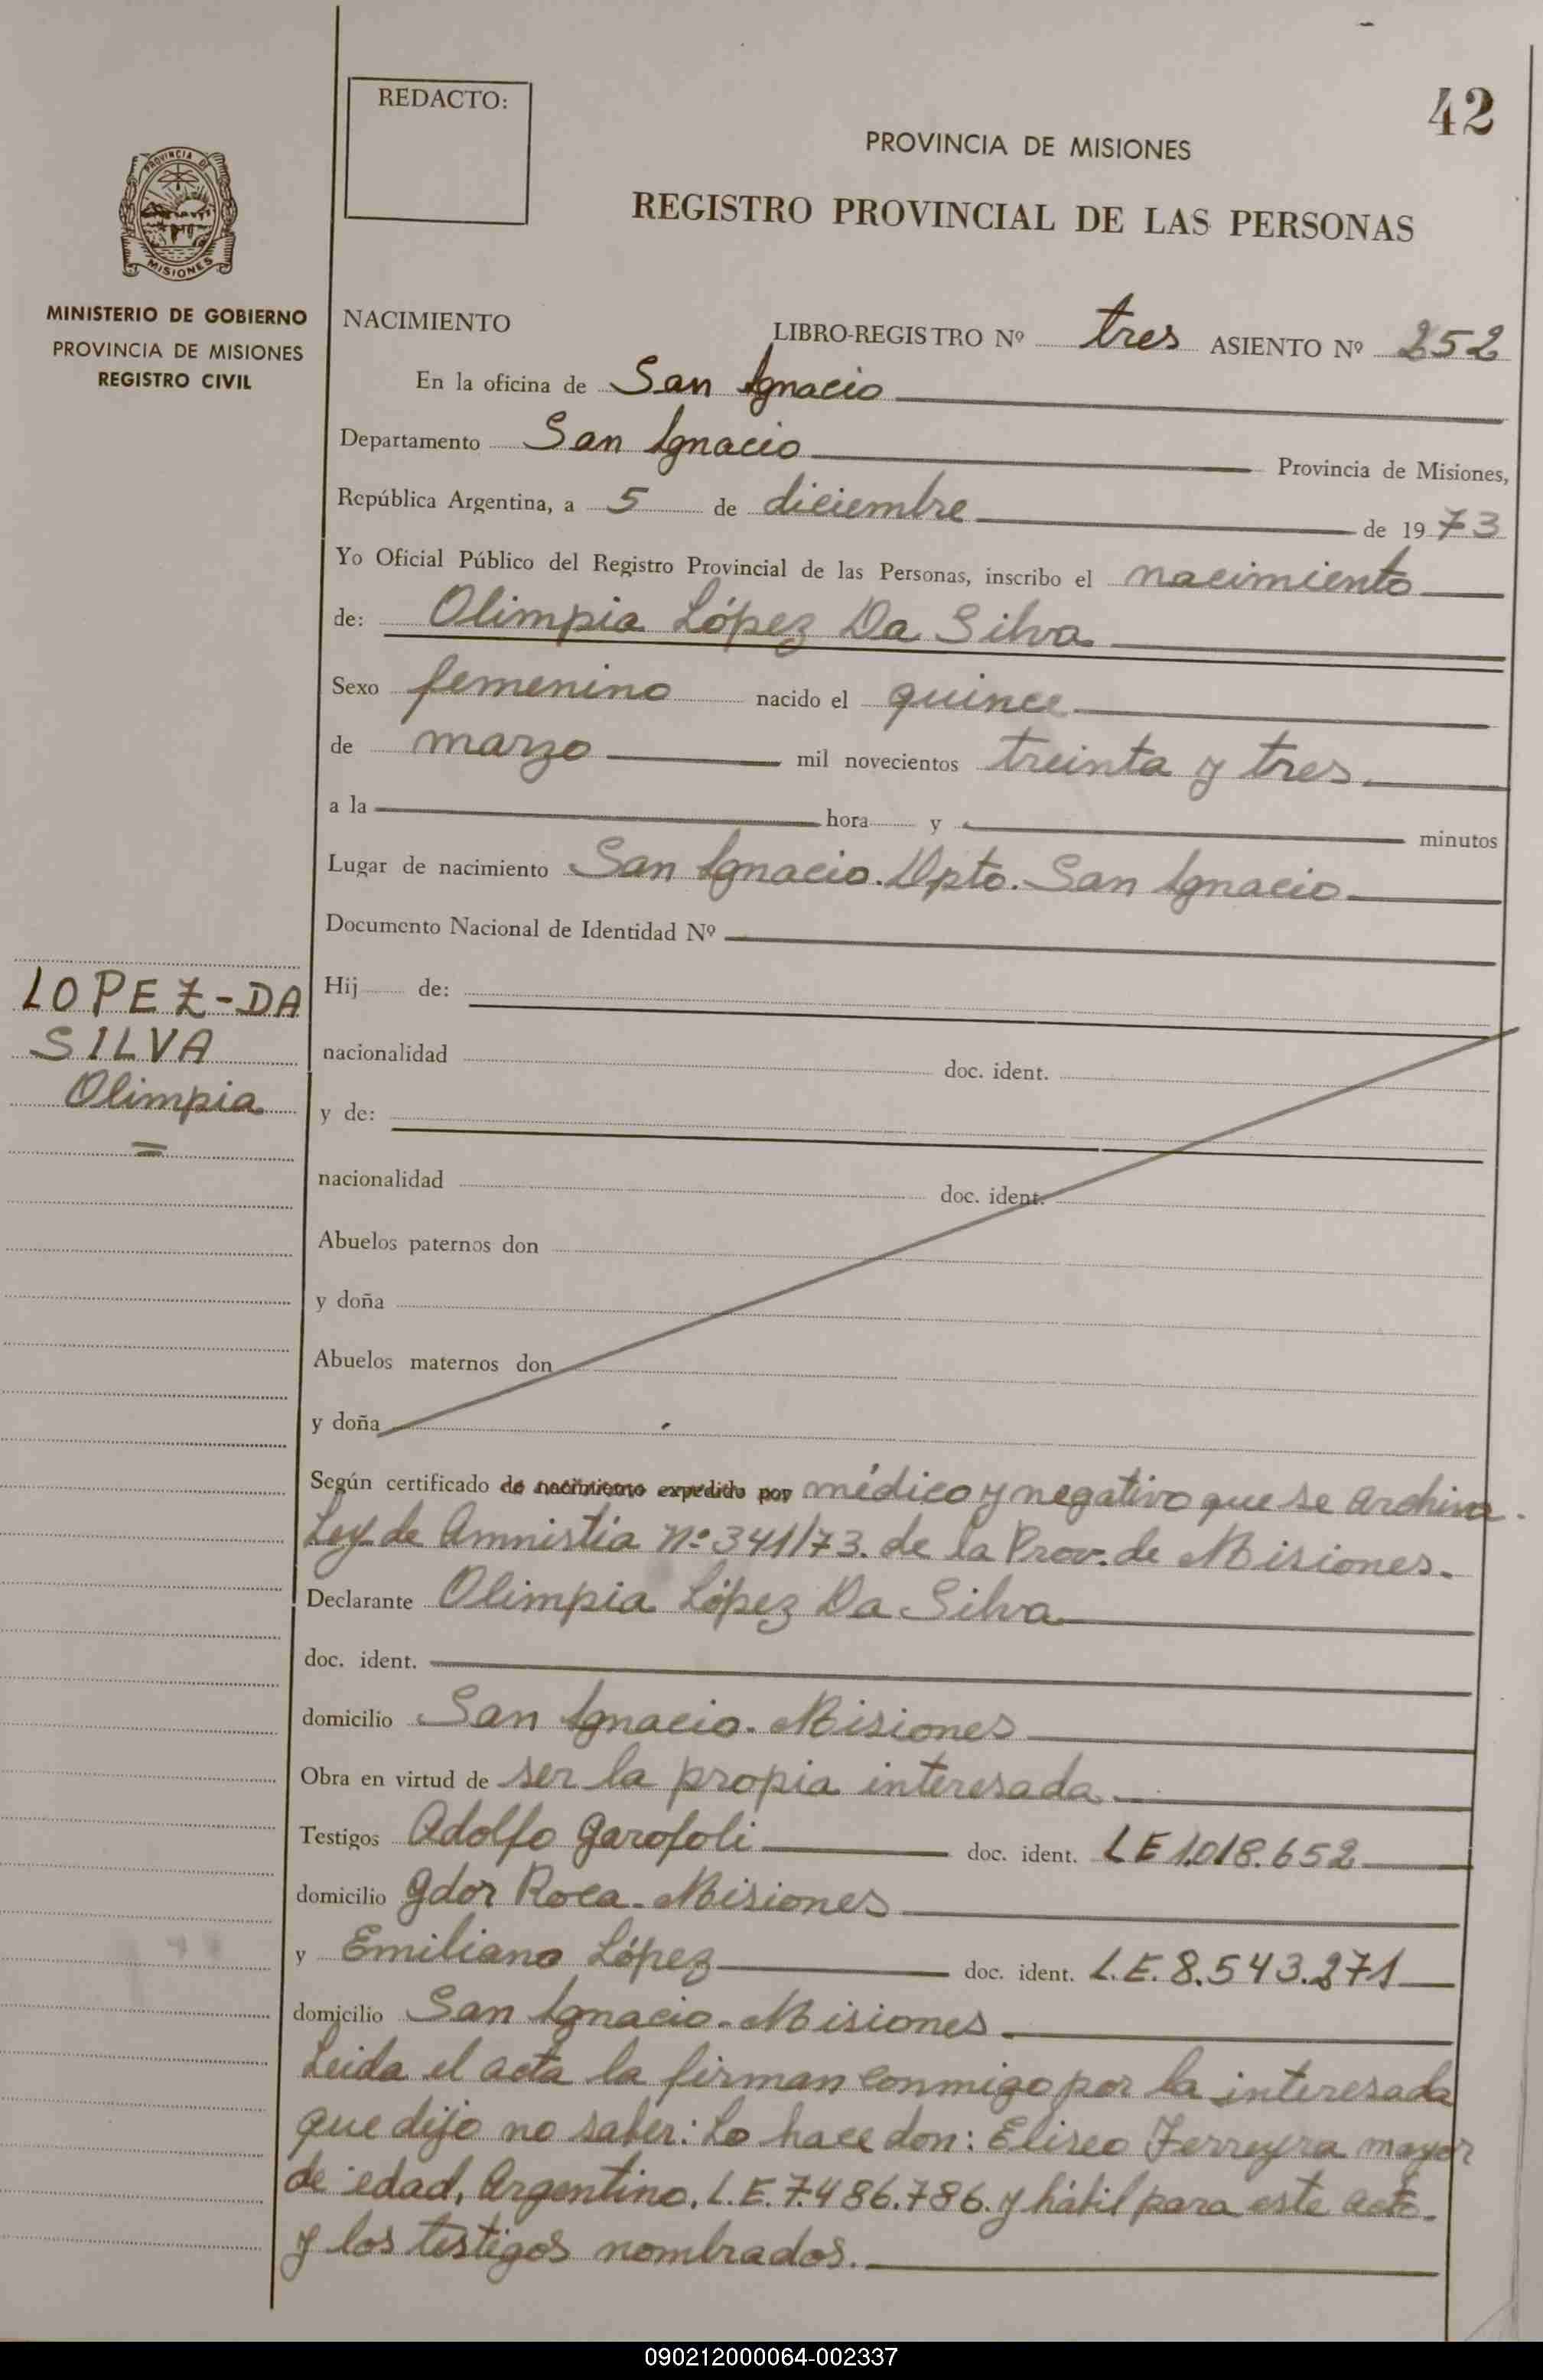 REDACTO:
42
PROVINCIA DE MISIONES
REGISTRO PROVINCIAL DE LAS PERSONAS
PROVINCIA DE
MISIONES
MINISTERIO DE GOBIERNO
PROVINCIA DE MISIONES
REGISTRO CIVIL
NACIMIENTO LIBRO-REGISTRO Nº tres ASIENTO Nº 252
En la oficina de San Ignacio
Departamento San Ignacio Provincia de Misiones,
República Argentina, a 5 de diciembre de 1973
Yo Oficial Público del Registro Provincial de las Personas, inscribo el nacimiento
de: Olimpia López Da Silva
Sexo femenino nacido el quince
de marzo mil novecientos treinta y tres
a la hora y minutos
Lugar de nacimiento San Ignacio. Dpto. San Ignacio
Documento Nacional de Identidad Nº
LOPEZ-DA
SILVA
Olimpia
Hij de:
nacionalidad doc. ident.
y de:
nacionalidad doc. ident.
Abuelos paternos don
y doña
Abuelos maternos don
y doña
Según certificado de nacimiento expedido por médico y negativo que se archiva.
Ley de Amnistia nº 341/73. de la Prov. de Misiones.
Declarante Olimpia López Da Silva
doc. ident.
domicilio San Ignacio. Misiones
Obra en virtud de ser la propia interesada
Testigos Adolfo Garofoli doc. ident. LE 1.018.652
domicilio Gdor Roca. Misiones
y Emiliano López doc. ident. L.E. 8.543.271
domicilio San Ignacio. Misiones
Leida el acta la firman conmigo por la interesada
que dijo no saber: Lo hace don: Eliseo Ferreyra mayor
de edad, Argentino, L.E. 7.486.786. y hábil para este acto.
y los testigos nombrados.
090212000064-002337